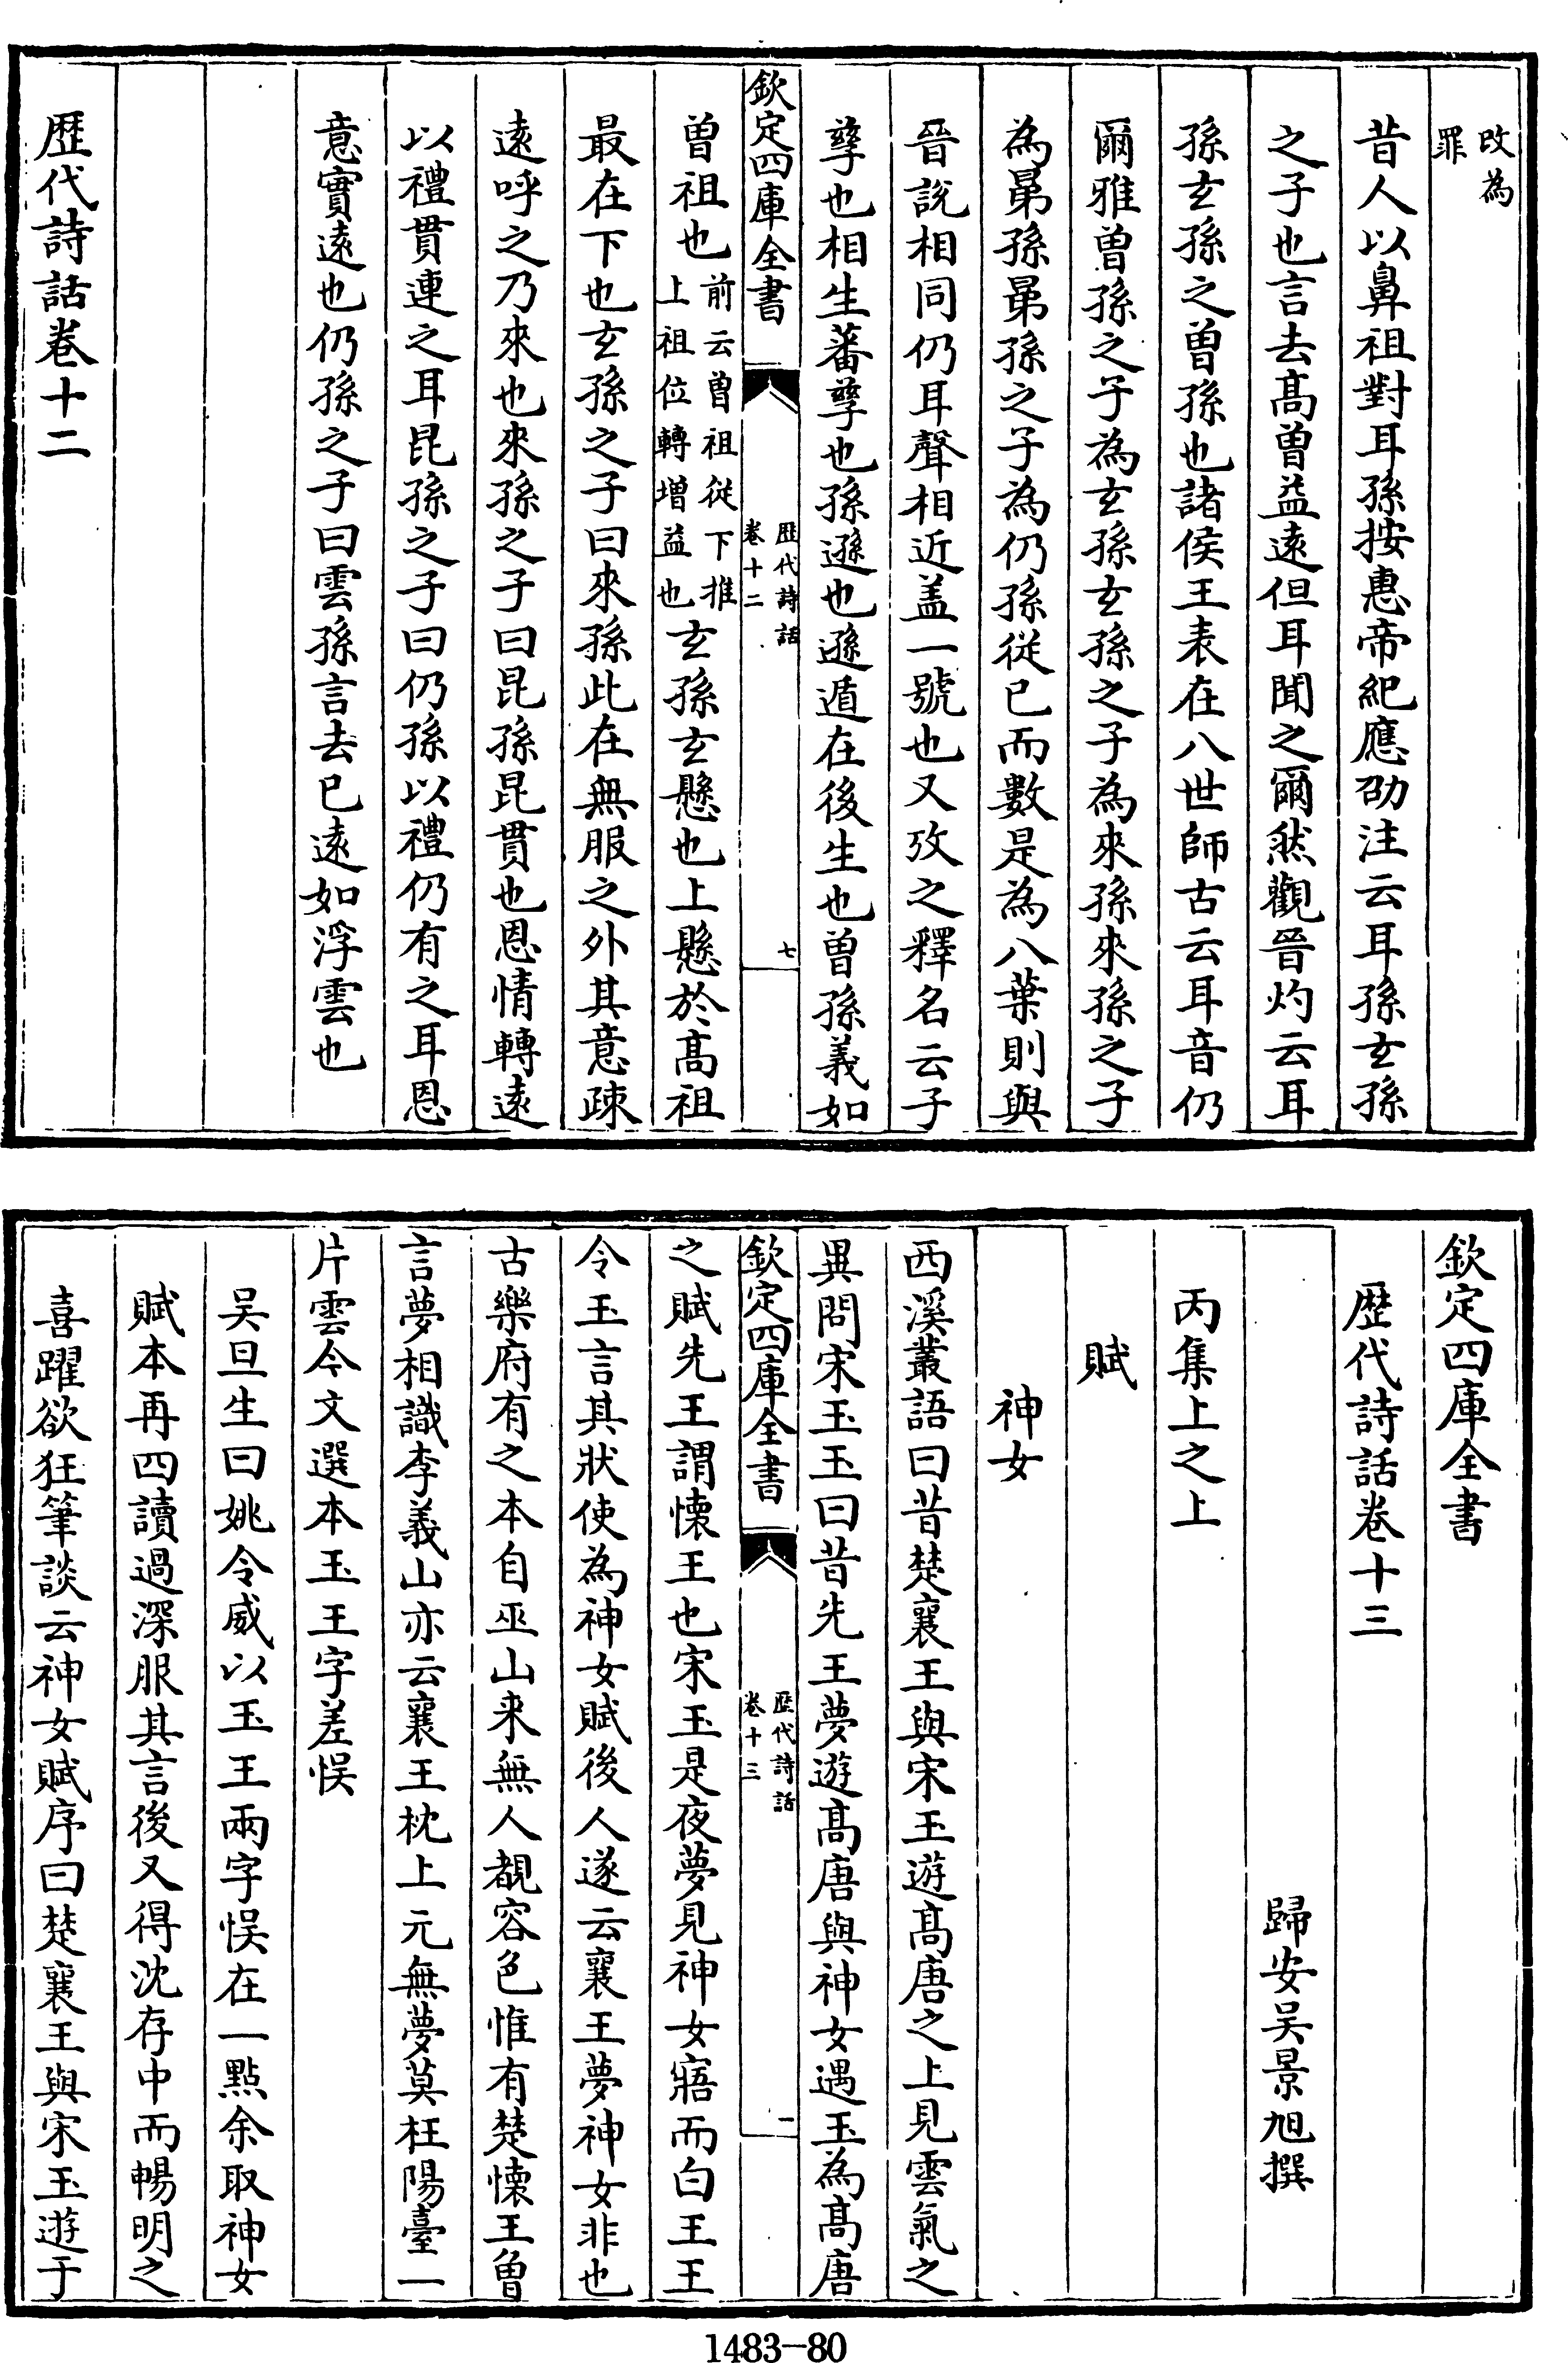 改為
罪
昔人以鼻祖對耳孫按惠帝紀應劭注云耳孫玄孫
之子也言去髙曽益逺但耳聞之爾然觀晉灼云耳
孫玄孫之曽孫也諸侯王表在八世師古云耳音仍
爾雅曽孫之子為玄孫玄孫之子為來孫來孫之子
為晜孫晜孫之子為仍孫從已而數是為八葉則與
晉説相同仍耳聲相近盖一號也又攷之釋名云子
孳也相生蕃孳也孫遜也遜遁在後生也曽孫義如
欽定四庫全書
歴代詩話
卷十二
七
曽祖也前云曽祖從下推
上祖位轉增益也玄孫玄懸也上懸於髙祖
最在下也玄孫之子曰來孫此在無服之外其意疎
逺呼之乃來也來孫之子曰昆孫昆貫也恩情轉逺
以禮貫連之耳昆孫之子曰仍孫以禮仍有之耳恩
意實逺也仍孫之子曰雲孫言去已逺如浮雲也
歴代詩話卷十二
欽定四庫全書
歴代詩話卷十三
歸安吴景旭撰
丙集上之上
賦
神女
西溪叢語曰昔楚襄王與宋玉遊髙唐之上見雲氣之
異問宋玉玉曰昔先王夢遊髙唐與神女遇玉為髙唐
欽定四庫全書
歴代詩話
卷十三
一
之賦先王謂懐王也宋玉是夜夢見神女寤而白王王
令玉言其狀使為神女賦後人遂云襄王夢神女非也
古樂府有之本自巫山来無人覩容色惟有楚懐王曽
言夢相識李義山亦云襄王枕上元無夢莫枉陽臺一
片雲今文選本玉王字差悮
吴旦生曰姚令威以玉王兩字悮在一㸃余取神女
賦本再四讀過深服其言後又得沈存中而暢明之
喜躍欲狂筆談云神女賦序曰楚襄王與宋玉遊于
1483-80